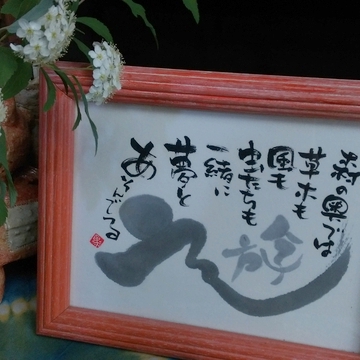 森の奥では
草木も
風も
虫たちも
一緒に
夢と
あそんでる